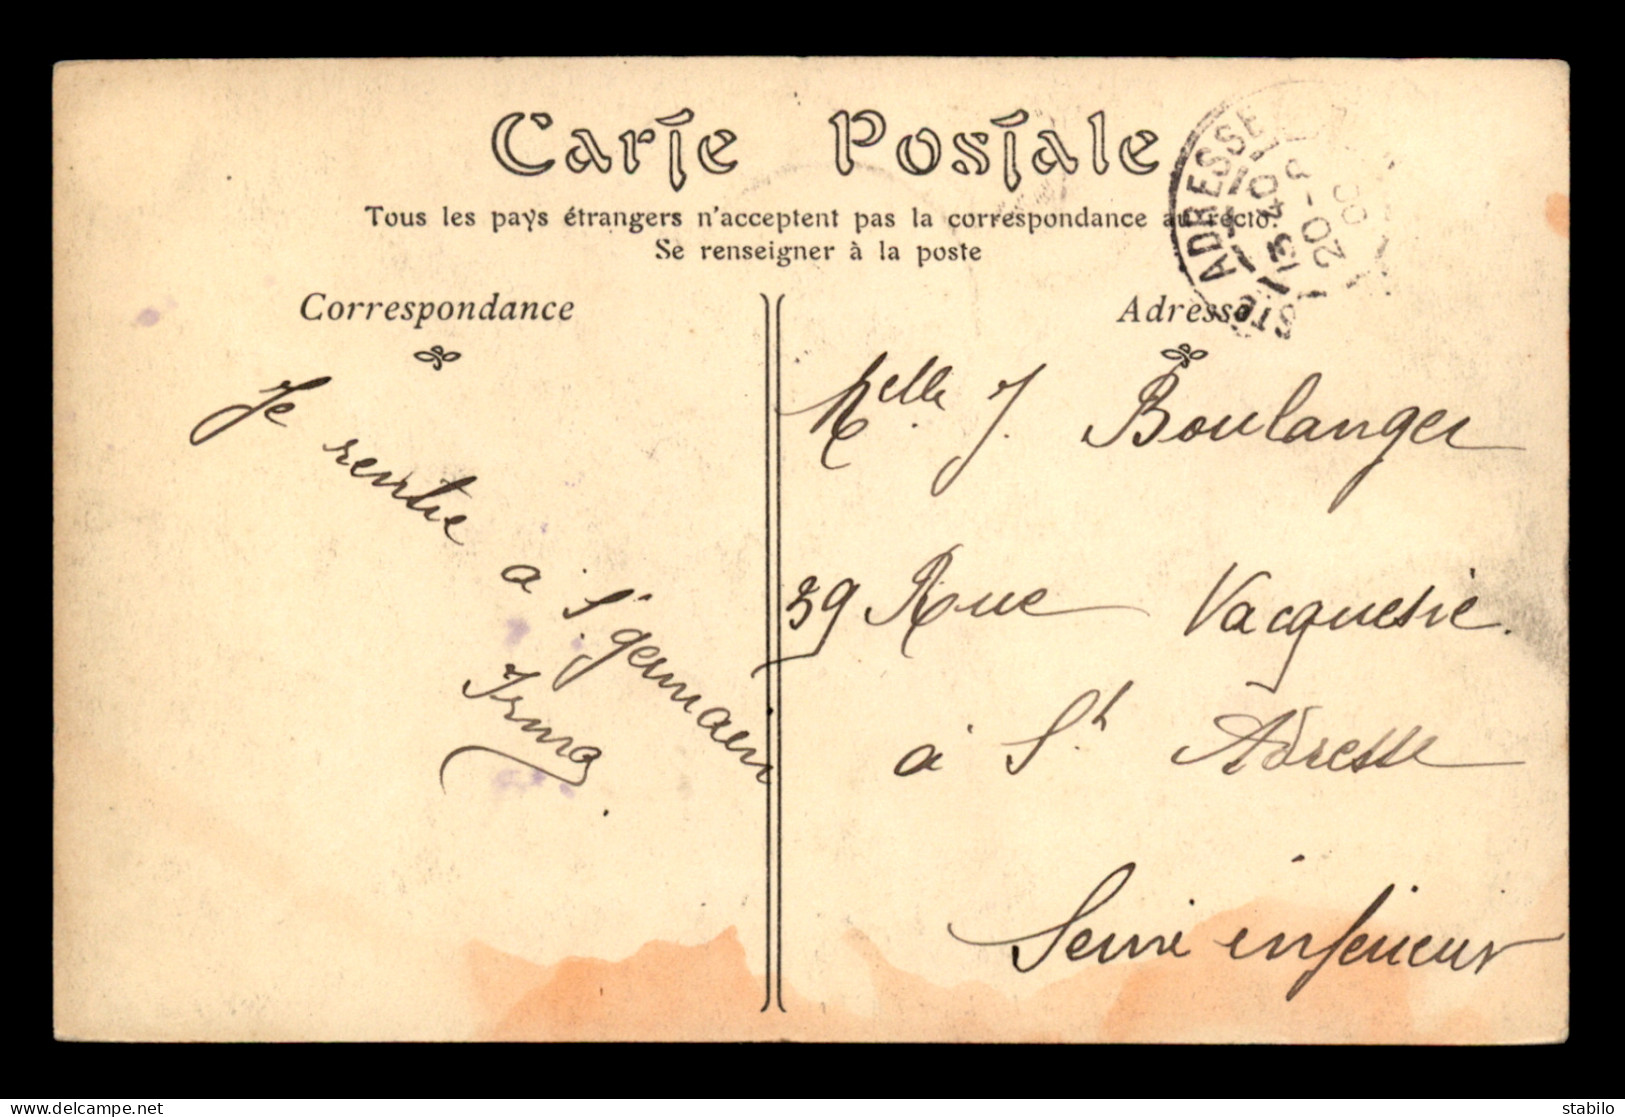 Carte Postale
Tous les pays étrangers n'acceptent pas la correspondance au recto.
Se renseigner à la poste
Correspondance
Adresse
STE ADRESSE
13 40
20 - 9
Je rentre
à St germain
Irma
Melle J. Boulanger
39 Rue Vacquerie
à St Adresse
Seine inferieur
stabilo